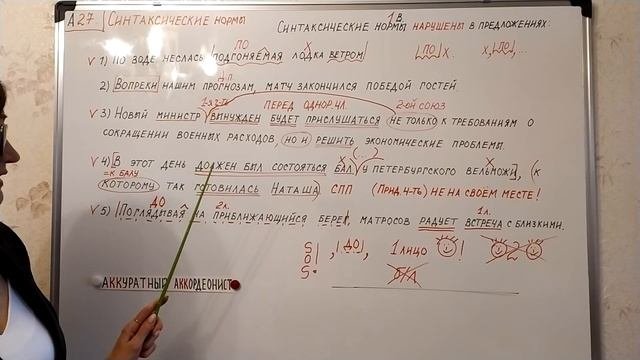 А27 Синтаксические нормы
1В.
Синтаксические нормы нарушены в предложениях:
ПО х
1) По воде неслась подгоняемая лодка ветром.
ПО х. х, ПО, ...
Д.п.
2) Вопреки нашим прогнозам, матч закончился победой гостей.
перед однор. чл. 2-ой союз
3) Новый министр вынужден будет прислушаться не только к требованиям о
сокращении военных расходов, но и решить экономические проблемы.
х (...) х
4) [В этот день должен был состояться бал у петербургского вельможи], (к
= к балу
которому так готовилась Наташа) СПП (Прид. ч-ть) не на своём месте!
ДО 2л. 1л.
5) Поглядывая на приближающийся берег, матросов радует встреча с близкими.
SOS. , ДО , 1 лицо ! 2
б/л
Аккуратный аккордеонист